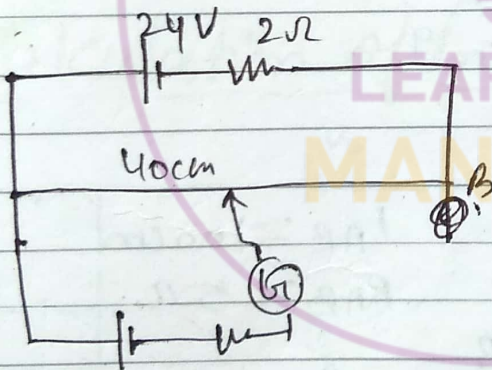 24V 2Ω
LEAR
40cm
MAN
B
G